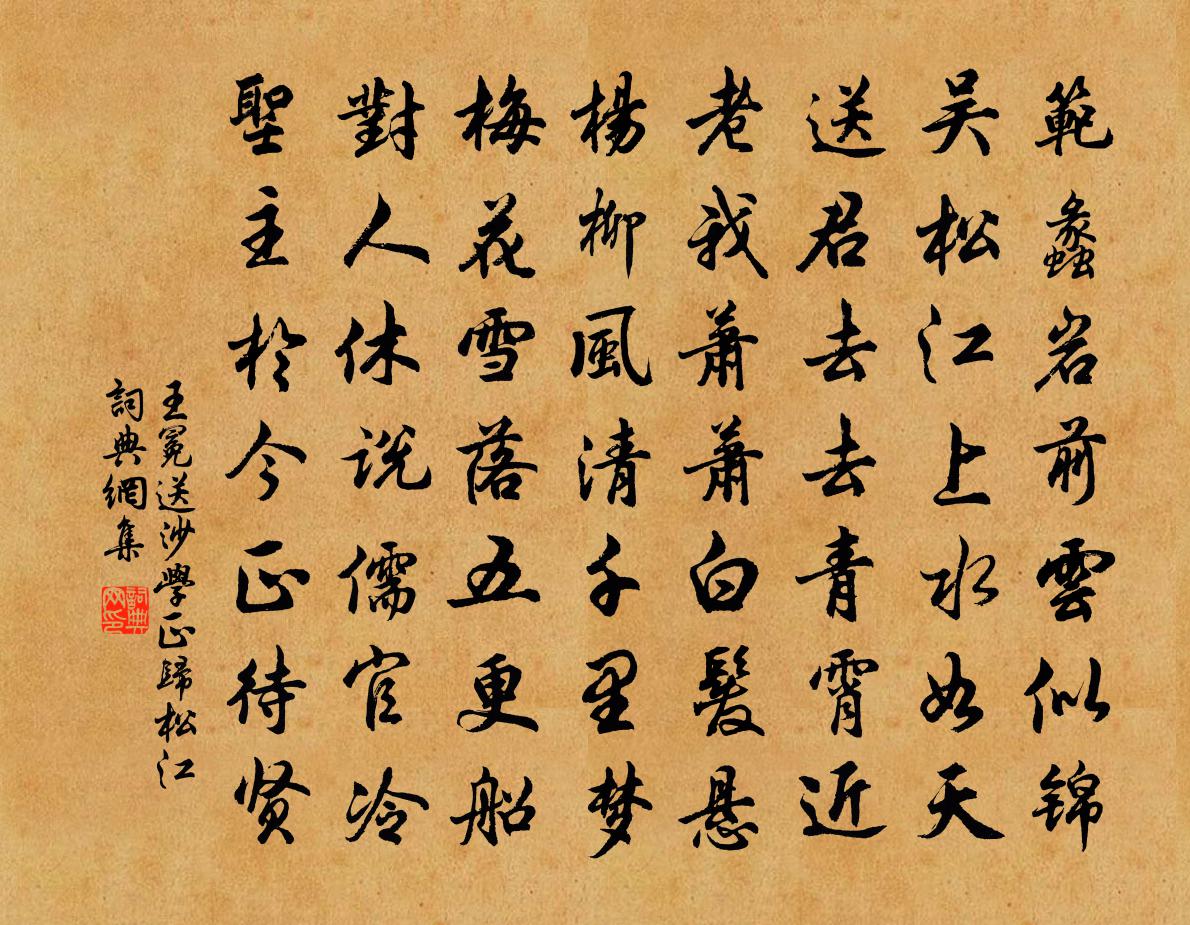 範蠡岩前雲似锦
吴松江上水如天
送君去去青霄近
老我萧萧白髮悬
楊柳風清千里梦
梅花雪落五更船
對人休说儒官冷
聖主於今正待贤
王冕送沙學正歸松江
詞典網集
詞典网印